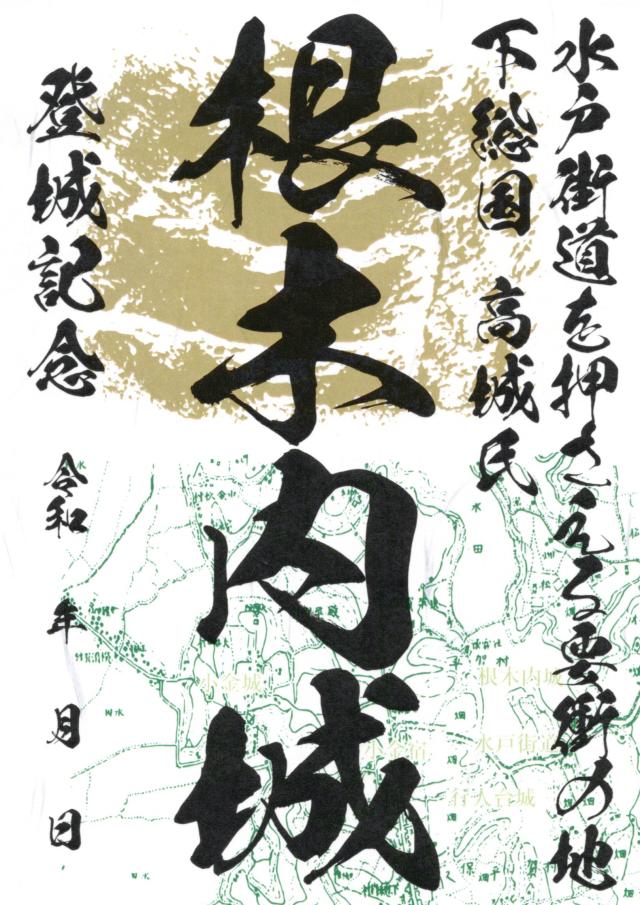 水戸街道を押さえる要衝の地
下総国 高城氏
根木内城
登城記念
令和 年 月 日
小金城
根木内城
小金宿
水戸街道
行人台城
水田
畑
畑
畑